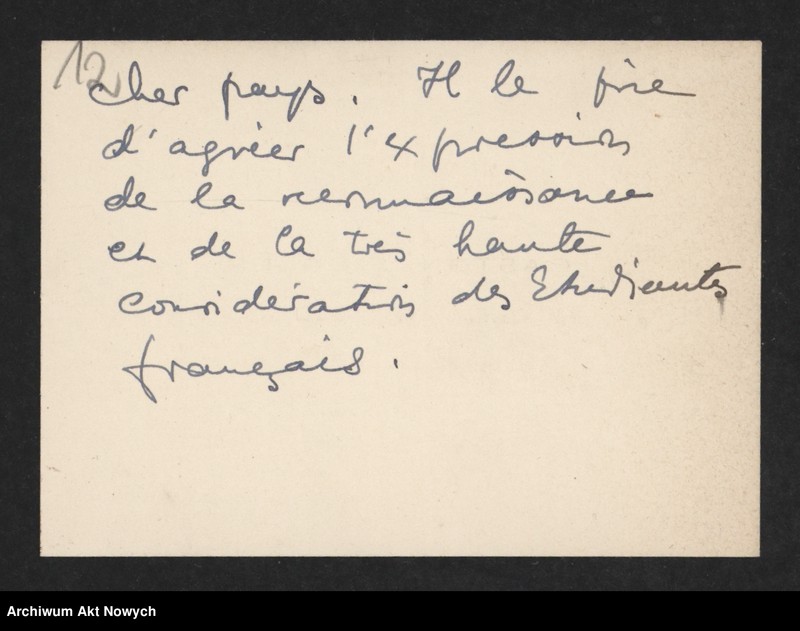 12
cher pays. Il le prie
d'agréer l'expression
de la reconnaissance
et de la très haute
considération des Etudiants
français.
Archiwum Akt Nowych